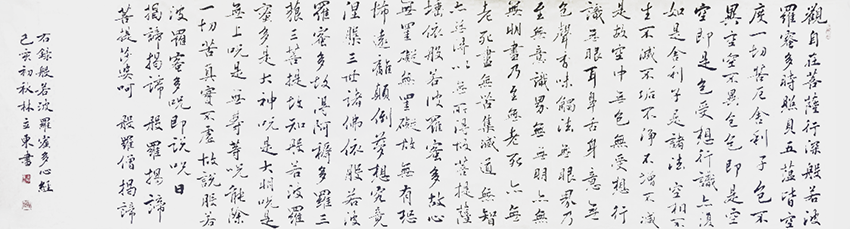 觀自在菩薩行深般若波
羅蜜多時照見五蘊皆空
度一切苦厄舍利子色不
異空空不異色色即是空
空即是色受想行識亦復
如是舍利子是諸法空相不
生不滅不垢不淨不增不減
是故空中無色無受想行
識無眼耳鼻舌身意無
色聲香味觸法無眼界乃
至無意識界無無明亦無
無明盡乃至無老死亦無
老死盡無苦集滅道無智
亦無得以無所得故菩提薩
埵依般若波羅蜜多故心
無罣礙無罣礙故無有恐
怖遠離顛倒夢想究竟
涅槃三世諸佛依般若波
羅蜜多故得阿耨多羅三
藐三菩提故知般若波羅
蜜多是大神呪是大明呪是
無上呪是無等等呪能除
一切苦真實不虛故說般若
波羅蜜多呪即說呪曰
揭諦揭諦 般羅揭諦
菩提莎婆呵 般羅僧揭諦
右錄般若波羅蜜多心經
己亥初秋林立東書